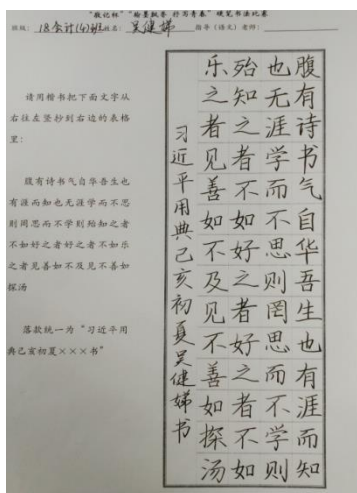 翰墨飘香 抒写青春" 硬笔书法比赛
班级：18会计(4)班姓名：吴健娣 指导（语文）老师：
请用楷书把下面文字从
右往左竖抄到右边的表格
里：
腹有诗书气自华吾生也
有涯而知也无涯学而不思
则罔思而不学则殆知之者
不如好之者好之者不如乐
之者见善如不及见不善如
探汤
落款统一为“习近平用
典己亥初夏×××书”
腹有诗书气自华吾生也有涯而知
也无涯学而不思则罔思而不学则
殆知之者不如好之者好之者不如
乐之者见善如不及见不善如探汤
习近平用典己亥初夏吴健娣书